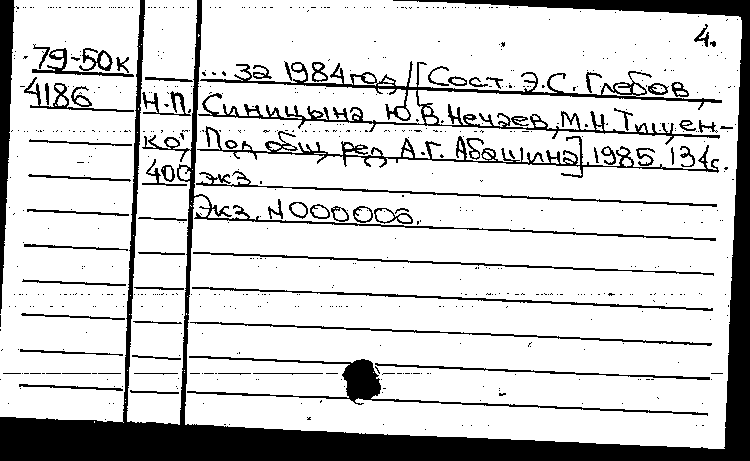 4.
79-50к ... за 1984 год/[Сост. Э.С. Глебов,
4186 Н.П. Синицына, Ю.В. Нечаев, М.Н. Тищен-
ко; Под общ. ред. А.Г. Абашина]. 1985. 134с.
400 экз.
Экз. N000006.